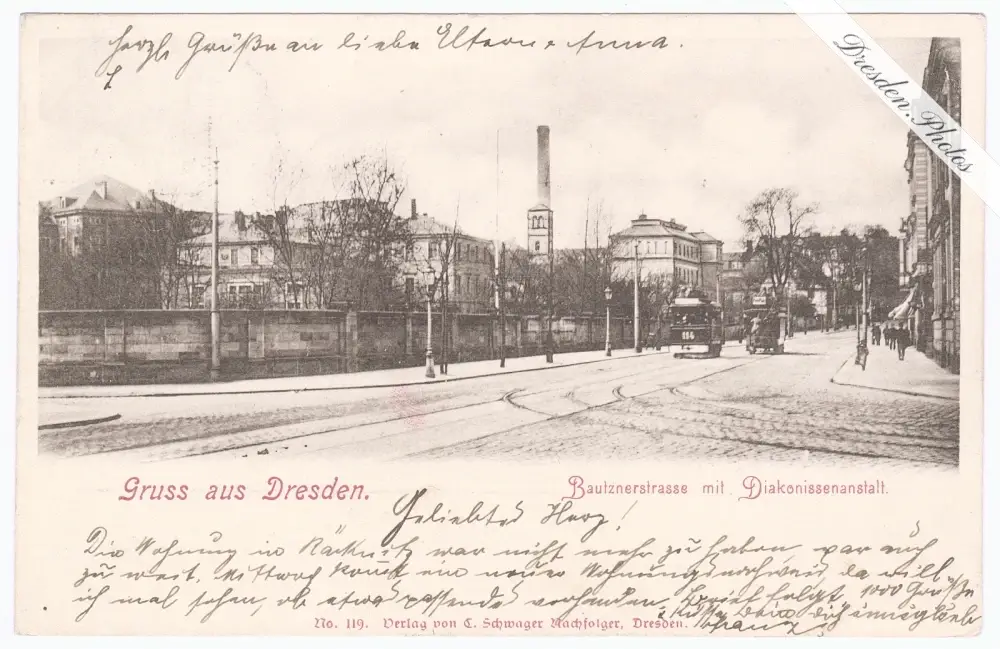 herzl Grüße an liebe Eltern u Anna.
Dresden.Photos
184
Gruss aus Dresden.
Bautznerstrasse mit Diakonissenanstalt.
Geliebtes Herz!
Die Wohnung in Räcknitz war nicht mehr zu haben, war auch
zu weit. Mittwoch kommt ein neuer Wohnungsnachweis, da will
ich mal sehen, ob etwas passendes vorhanden. Brief folgt. 1000 Grüße
u Küsse Dein dich innigliebd
Franz
No. 119. Verlag von C. Schwager Nachfolger, Dresden.